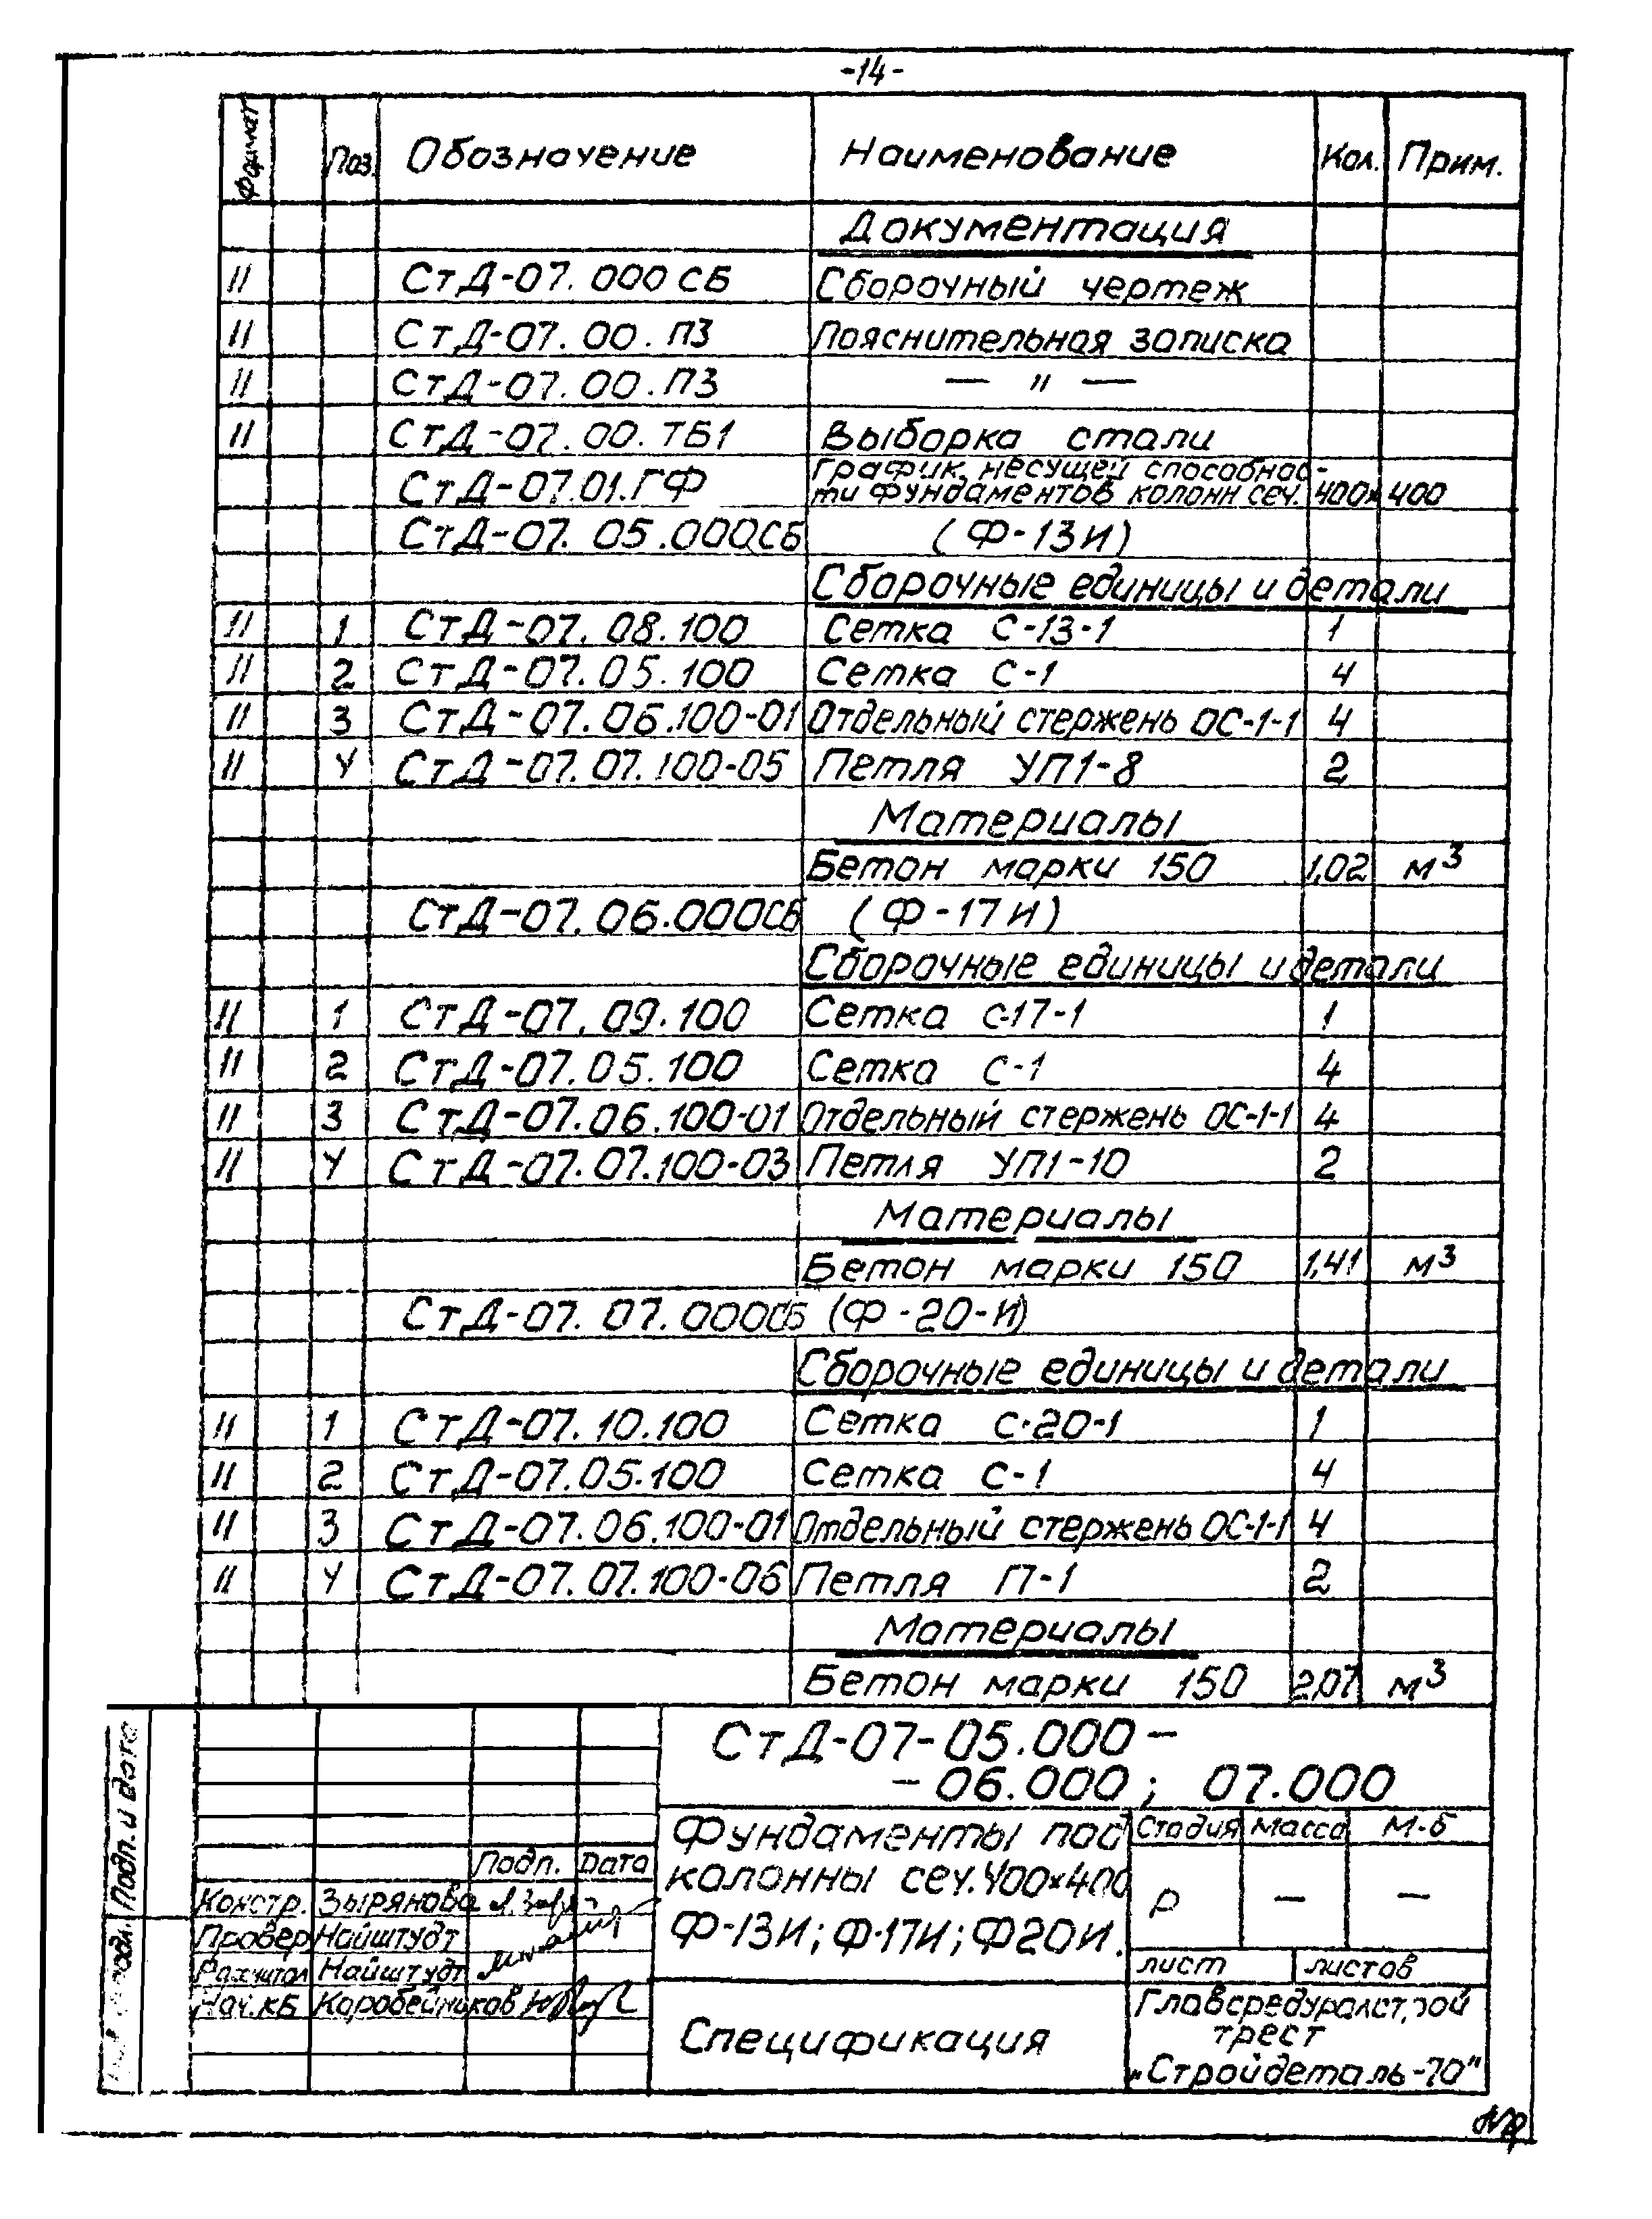 -14-
Формат Поз. Обозначение Наименование Кол. Прим.
Документация
11 СтД-07.000 СБ Сборочный чертеж
11 СтД-07.00.ПЗ Пояснительная записка
11 СтД-07.00.ПЗ — " —
11 СтД-07.00.ТБ1 Выборка стали
СтД-07.01.ГФ График несущей способнос-
ти фундаментов колонн сеч. 400×400
СтД-07.05.000СБ (Ф-13И)
Сборочные единицы и детали
11 1 СтД-07.08.100 Сетка С-13-1 1
11 2 СтД-07.05.100 Сетка С-1 4
11 3 СтД-07.06.100-01 Отдельный стержень ОС-1-1 4
11 4 СтД-07.07.100-05 Петля УП1-8 2
Материалы
Бетон марки 150 1,02 м³
СтД-07.06.000СБ (Ф-17И)
Сборочные единицы и детали
11 1 СтД-07.09.100 Сетка С-17-1 1
11 2 СтД-07.05.100 Сетка С-1 4
11 3 СтД-07.06.100-01 Отдельный стержень ОС-1-1 4
11 4 СтД-07.07.100-03 Петля УП1-10 2
Материалы
Бетон марки 150 1,41 м³
СтД-07.07.000СБ (Ф-20-И)
Сборочные единицы и детали
11 1 СтД-07.10.100 Сетка С-20-1 1
11 2 СтД-07.05.100 Сетка С-1 4
11 3 СтД-07.06.100-01 Отдельный стержень ОС-1-1 4
11 4 СтД-07.07.100-06 Петля П-1 2
Материалы
Бетон марки 150 2,07 м³
СтД-07-05.000-
-06.000; 07.000
Фундаменты под
колонны сеч. 400×400
Ф-13И; Ф-17И; Ф20И.
Стадия Масса М-б
Р — —
лист листов
Подп. Дата
Констр. Зырянова
Провер Найштудт
Рассчитал Найштудт
Нач.КБ Коробейников
Спецификация
Главсредуралстрой
трест
"Стройдеталь-70"
Подп. и дата
подл.